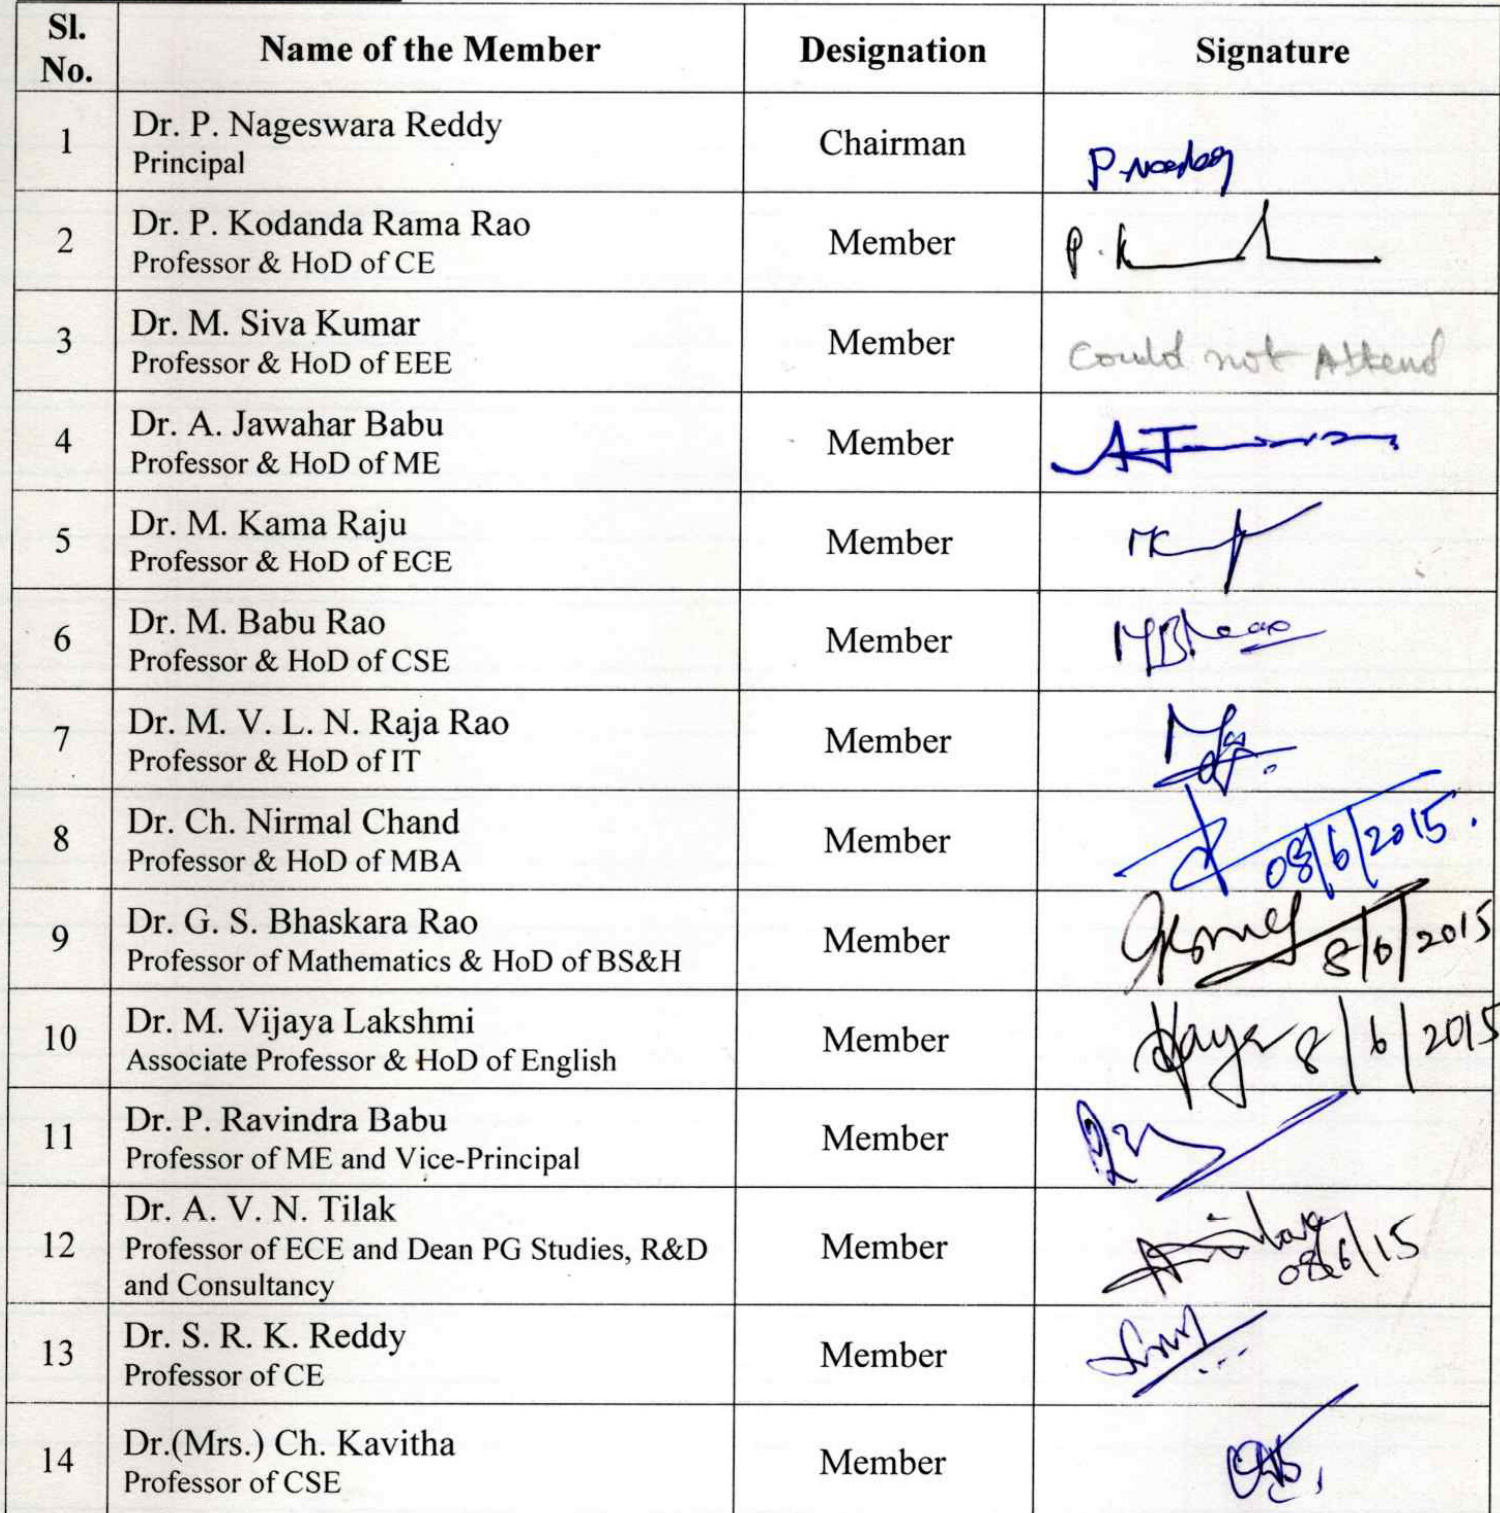 Sl. No.
Name of the Member
Designation
Signature
1
Dr. P. Nageswara Reddy
Principal
Chairman
2
Dr. P. Kodanda Rama Rao
Professor & HoD of CE
Member
P. K
3
Dr. M. Siva Kumar
Professor & HoD of EEE
Member
Could not Attend
4
Dr. A. Jawahar Babu
Professor & HoD of ME
Member
5
Dr. M. Kama Raju
Professor & HoD of ECE
Member
6
Dr. M. Babu Rao
Professor & HoD of CSE
Member
7
Dr. M. V. L. N. Raja Rao
Professor & HoD of IT
Member
8
Dr. Ch. Nirmal Chand
Professor & HoD of MBA
Member
08/6/2015.
9
Dr. G. S. Bhaskara Rao
Professor of Mathematics & HoD of BS&H
Member
8/6/2015
10
Dr. M. Vijaya Lakshmi
Associate Professor & HoD of English
Member
8/6/2015
11
Dr. P. Ravindra Babu
Professor of ME and Vice-Principal
Member
12
Dr. A. V. N. Tilak
Professor of ECE and Dean PG Studies, R&D
and Consultancy
Member
08/6/15
13
Dr. S. R. K. Reddy
Professor of CE
Member
14
Dr.(Mrs.) Ch. Kavitha
Professor of CSE
Member